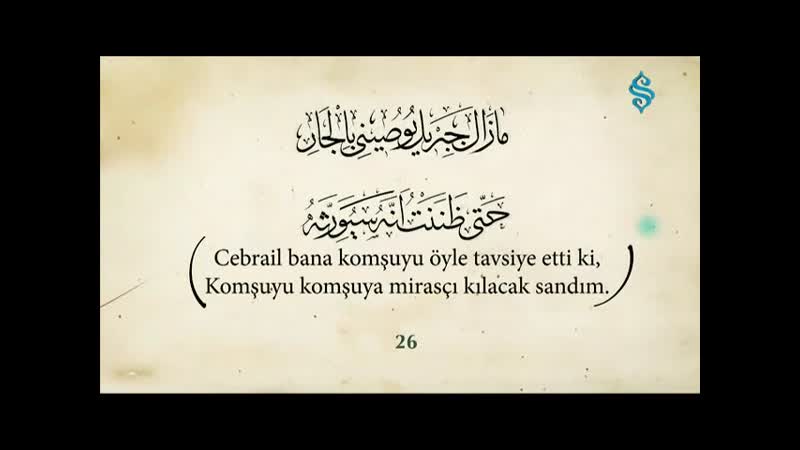 مَازَالَ جَبْرِيلُ يُوصِينِي بِالْجَارِ
حَتَّى ظَنَنْتُ أَنَّهُ سَيُوَرِّثُهُ
Cebrail bana komşuyu öyle tavsiye etti ki,
Komşuyu komşuya mirasçı kılacak sandım.
26